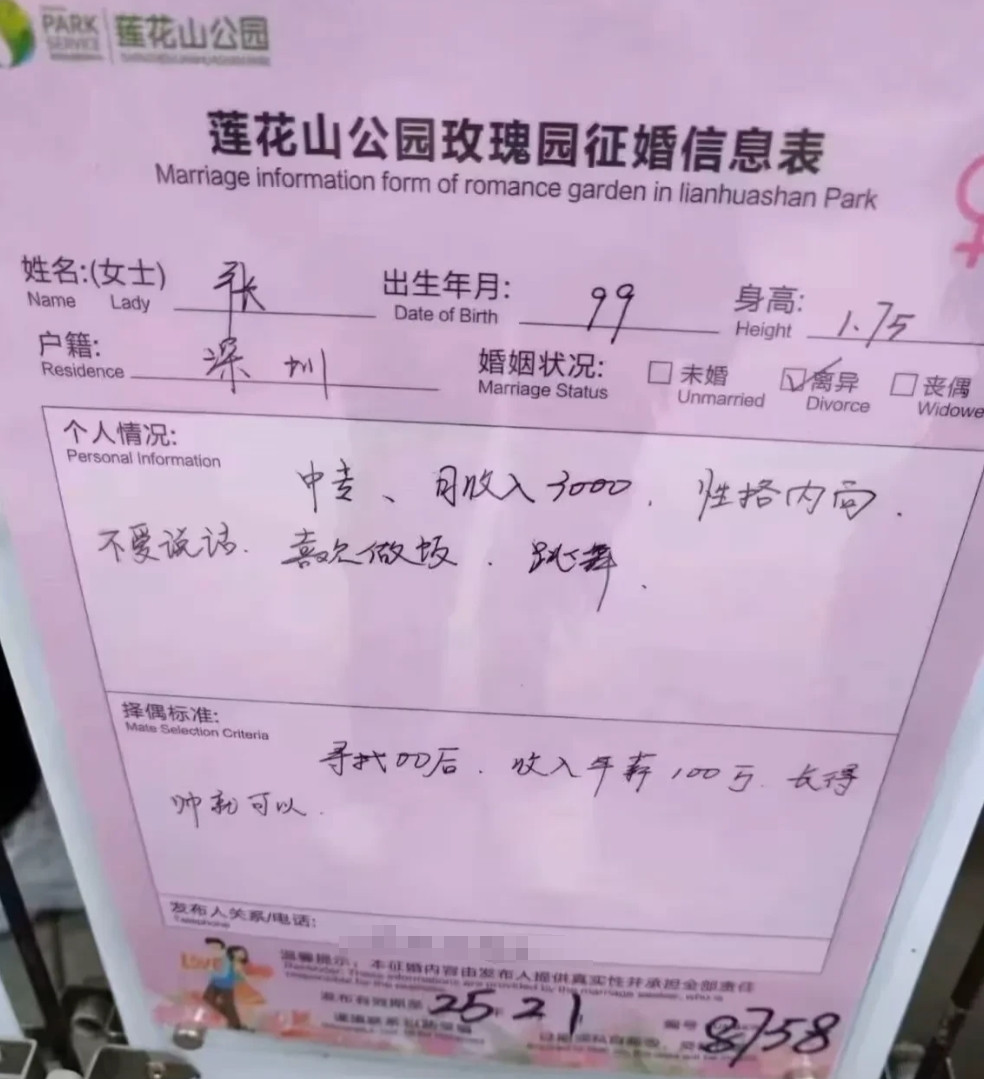 PARK 莲花山公园
SERVICE
莲花山公园玫瑰园征婚信息表
Marriage information form of romance garden in lianhuashan Park
姓名:(女士) 张 出生年月: 99 身高: 1.75
Name Lady Date of Birth Height
户籍: 深圳 婚姻状况: 未婚 离异 丧偶
Residence Marriage Status Unmarried Divorce Widowe
个人情况:
Personal Information
中专、月收入3000. 性格内向.
不爱说话. 喜欢做饭. 跳舞.
择偶标准:
Mate Selection Criteria
寻找00后. 收入年薪100万. 长得
帅就可以.
发布人关系/电话:
Telephone
Love 温馨提示：本征婚内容由发布人提供真实性并承担全部责任
发布有效期至 25 年 21 编号 8758